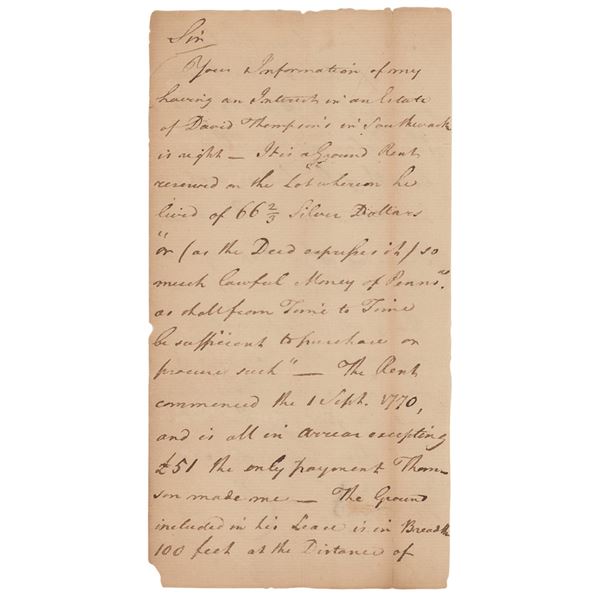 Sir
Your Information of my
having an Interest in an Estate
of David Thompson's in Southwark
is right — It is a Ground Rent
reserved on the Lot whereon he
lived of 66 2/3 Silver Dollars
"or (as the Deed expresses it) so
much lawful Money of Penns.a
as shall from Time to Time
be sufficient to purchase or
procure such" — The Rent
commenced the 1 Sept. 1770,
and is all in arrear excepting
£51 the only payment Thom-
son made me — The Ground
included in his Lease is in Breadth
100 feet at the Distance of